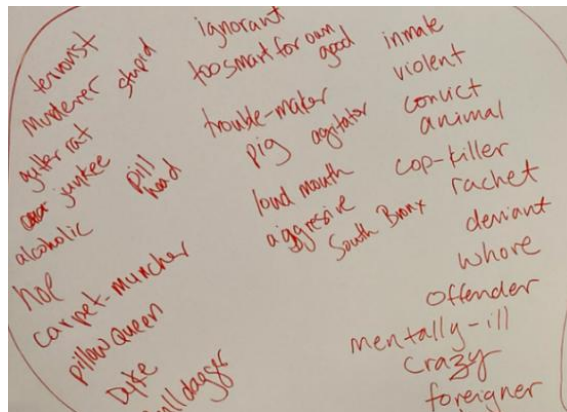 terrorist
murderer
stupid
gutter rat
junkee
pill
head
alcoholic
hoe
carpet-muncher
pillow queen
Dyke
ignorant
too smart for own
good
trouble-maker
pig agitator
loud mouth
aggressive
South Bronx
inmate
violent
convict
animal
cop-killer
rachet
deviant
whore
offender
mentally-ill
crazy
foreigner